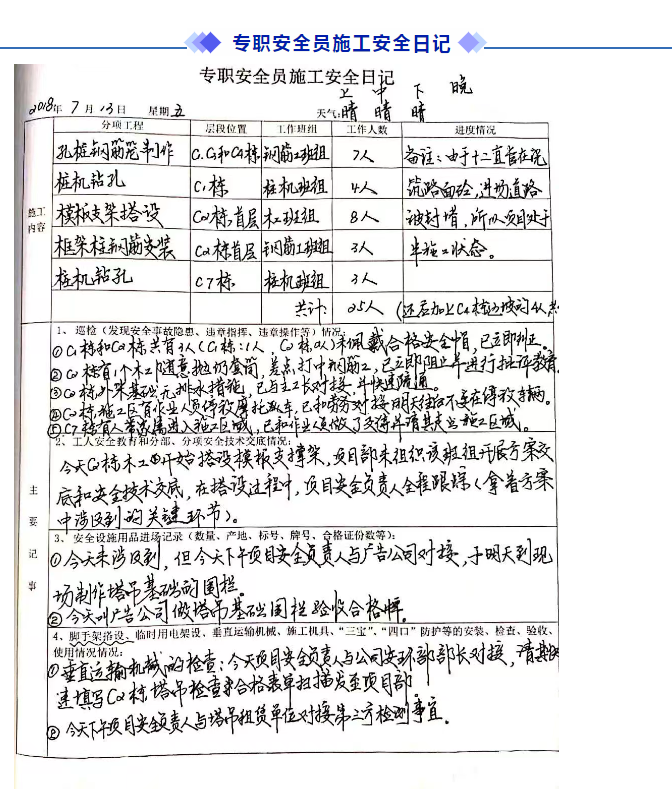 专职安全员施工安全日记
专职安全员施工安全日记
上 中 下 晚
2018年 7 月 13日 星期五 天气:晴 晴 晴
分项工程 层段位置 工作班组 工作人数 进度情况
孔桩钢筋笼制作 C1.C3和C4栋 钢筋工班组 7人 备注:由于十二直管在浇
桩机钻孔 C1栋 桩机班组 4人 筑路面砼,进场道路
施工
内容
模板支架搭设 C2栋首层 木工班组 8人 被封堵,所以项目处于
框架柱钢筋安装 C2栋首层 钢筋工班组 3人 半施工状态。
桩机钻孔 C7栋 桩机班组 3人
共计: 25人
1、巡检(发现安全事故隐患、违章指挥、违章操作等)情况:
①C1栋和C2栋共有3人(C1栋:1人, C2栋:2人)未佩戴合格安全帽,已立即纠正。
②C2栋有1个木工随意抛扔套筒,差点打中钢筋工,已立即阻止并进行批评教育
③C2栋外架基础无排水措施,已与主工长对接,并快速疏通。
④C2栋施工区有作业人员停放摩托车,已和劳务对接明天往后不要在停放车辆。
⑤C7栋有人带家属进入施工区域,已和作业人员做了交待并请其走出施工区域。
2、工人安全教育和分部、分项安全技术交底情况:
今天C2栋木工开始搭设模板支撑架,项目部未组织该班组开展方案交
底和安全技术交底,在搭设过程中,项目安全负责人全程跟踪(拿着方案
中涉及到的关键环节)。
主
要
记
事
3、安全设施用品进场记录(数量、产地、标号、牌号、合格证份数等):
①今天未涉及到,但今天下午项目安全负责人与广告公司对接,于明天到现
场制作塔吊基础的围栏。
②今天叫广告公司做塔吊基础围栏验收合格牌。
4、脚手架搭设、临时用电架设、垂直运输机械、施工机具、“三宝”、“四口”防护等的安装、检查、验收、
使用情况情况:
①垂直运输机械的检查:今天项目安全负责人与公司安环部部长对接,请其快
速填写C2栋塔吊检查合格表单扫描发至项目部。
②今天下午项目安全负责人与塔吊租赁单位对接第三方检测事宜。